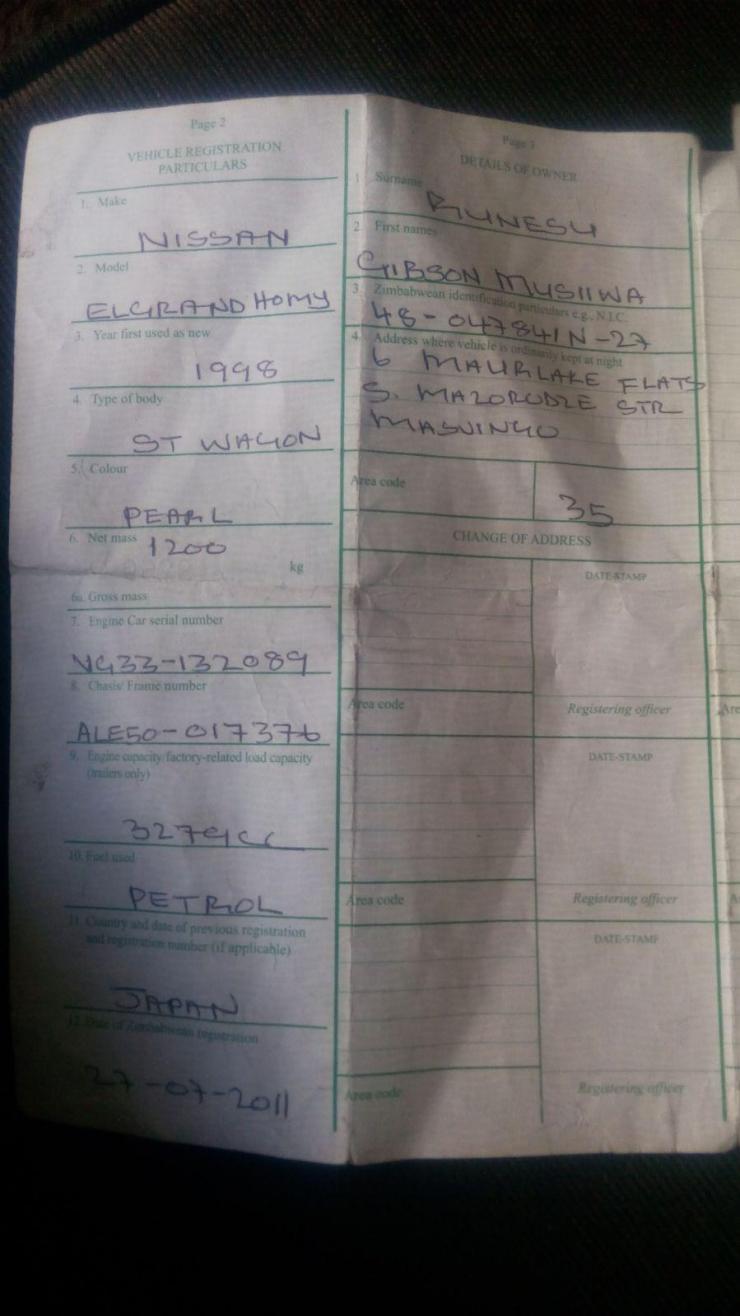 Page 2
VEHICLE REGISTRATION
PARTICULARS
1. Make
NISSAN
2. Model
ELGRAND HOMY
3. Year first used as new
1998
4. Type of body
ST WAGON
5. Colour
PEARL
6. Net mass
1200
kg
6a. Gross mass
7. Engine Car serial number
VG33-132089
8. Chasis/ Frame number
ALE50-017376
9. Engine capacity/factory-related load capacity
(trailers only)
3279cc
10. Fuel used
PETROL
11. Country and date of previous registration
and registration number (if applicable)
JAPAN
12. Date of Zimbabwean registration
27-07-2011
Page 3
DETAILS OF OWNER
1. Surname
RUNESU
2. First names
GIBSON MUSIIWA
3. Zimbabwean identification particulars e.g., N.I.C.
48-047841N-27
4. Address where vehicle is ordinarily kept at night
6 MAURLAKE FLATS
S. MAZORODZE STR
MASVINGO
Area code
35
CHANGE OF ADDRESS
DATE-STAMP
Area code
Registering officer
DATE-STAMP
Area code
Registering officer
DATE-STAMP
Area code
Registering officer
Are